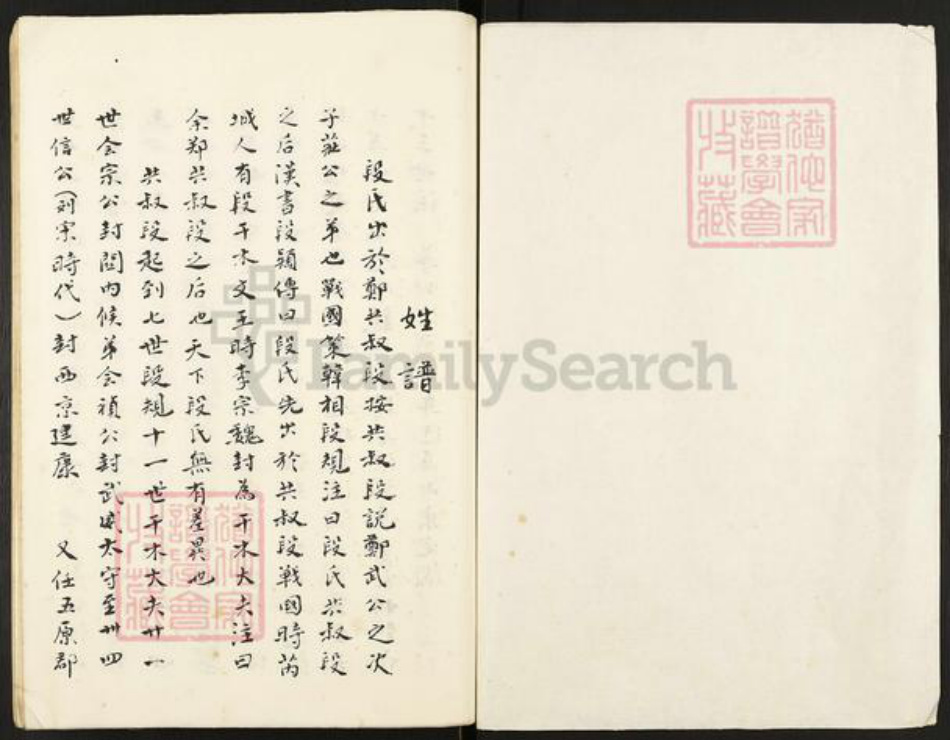 姓譜
段氏出於鄭共叔段按共叔段說鄭武公之次
子莊公之弟也戰國策韓相段規注曰段氏共叔段
之后漢書段熲傳曰段氏先出於共叔段戰國時芮
城人有段干木文王時李宗魏封為干木大夫注曰
余鄭共叔段之后也天下段氏無有差異也
共叔段起到七世段規十一世干木大夫廿一
世会宗公封関內候弟会禎公封武威太守至卌四
世信公(列宋時代)封西京建康 又任五原郡
譜學會
收藏
FamilySearch